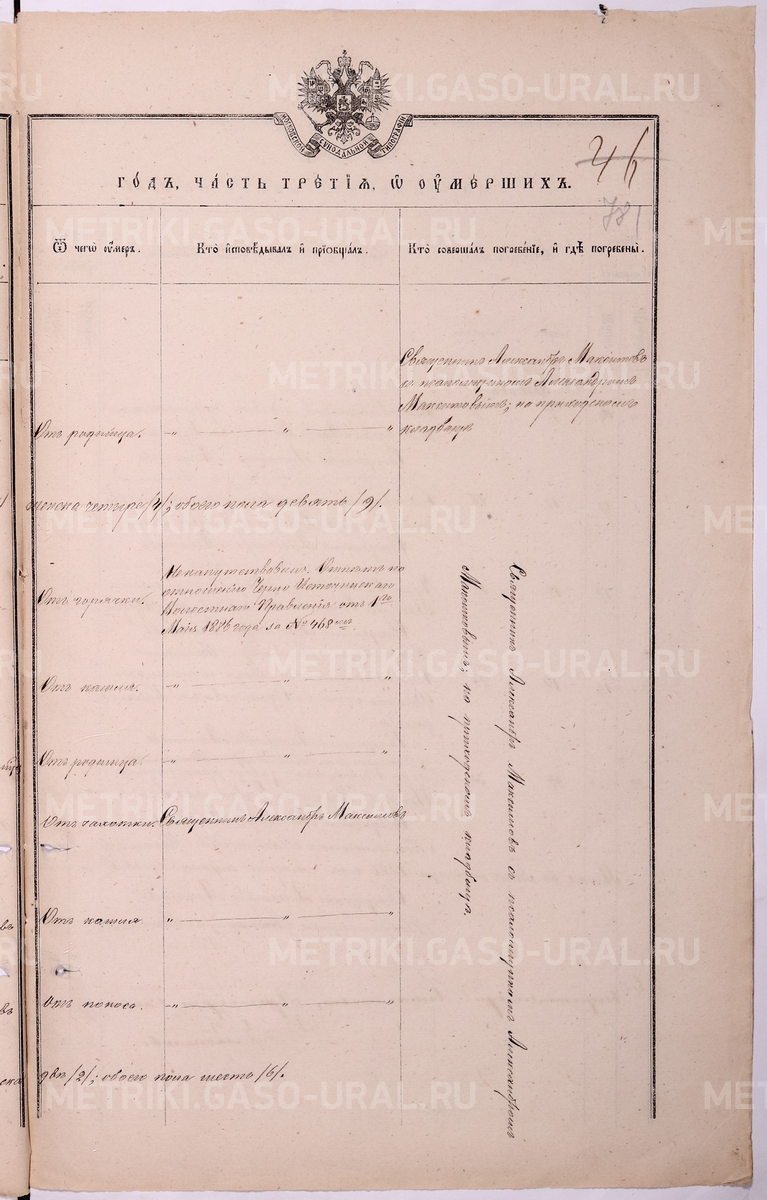 МОСКОВСКОЙ СѴНОДАЛЬНОЙ ТИПОГРАФІИ
46
781
ГОДЪ, ЧАСТЬ ТРЕТІЯ, Ѡ ОУМЕРШИХЪ.
Ѿ чегѡ оумеръ.
Кто исповѣдывалъ и пріобщалъ.
Кто совершалъ погребеніе, и гдѣ погребены.
Священникъ Александръ Максимовъ
съ псаломщикомъ Александромъ
Максимовымъ; на приходскомъ
кладбищѣ
Отъ родимца. —„— „ — „
женска четыре /4/; обоего пола девять /9/.
Не напутствованъ. Отпѣтъ по
отношенію Черно-Источинскаго
Волостнаго Правленія отъ 1го
Мая 1886 года за № 468мъ
Отъ горячки.
Отъ кашля. —„— „ — „
Отъ родимца. —„— „ — „
Отъ чахотки. Священникъ Александръ Максимовъ
Отъ кашля „ — „ — „
Отъ поноса. —„— „ — „
двѣ /2/; обоего пола шесть /6/.
Священникъ Александръ Максимовъ съ псаломщикомъ Александромъ
Максимовымъ; на приходскомъ кладбищѣ.
METRIKI.GASO-URAL.RU